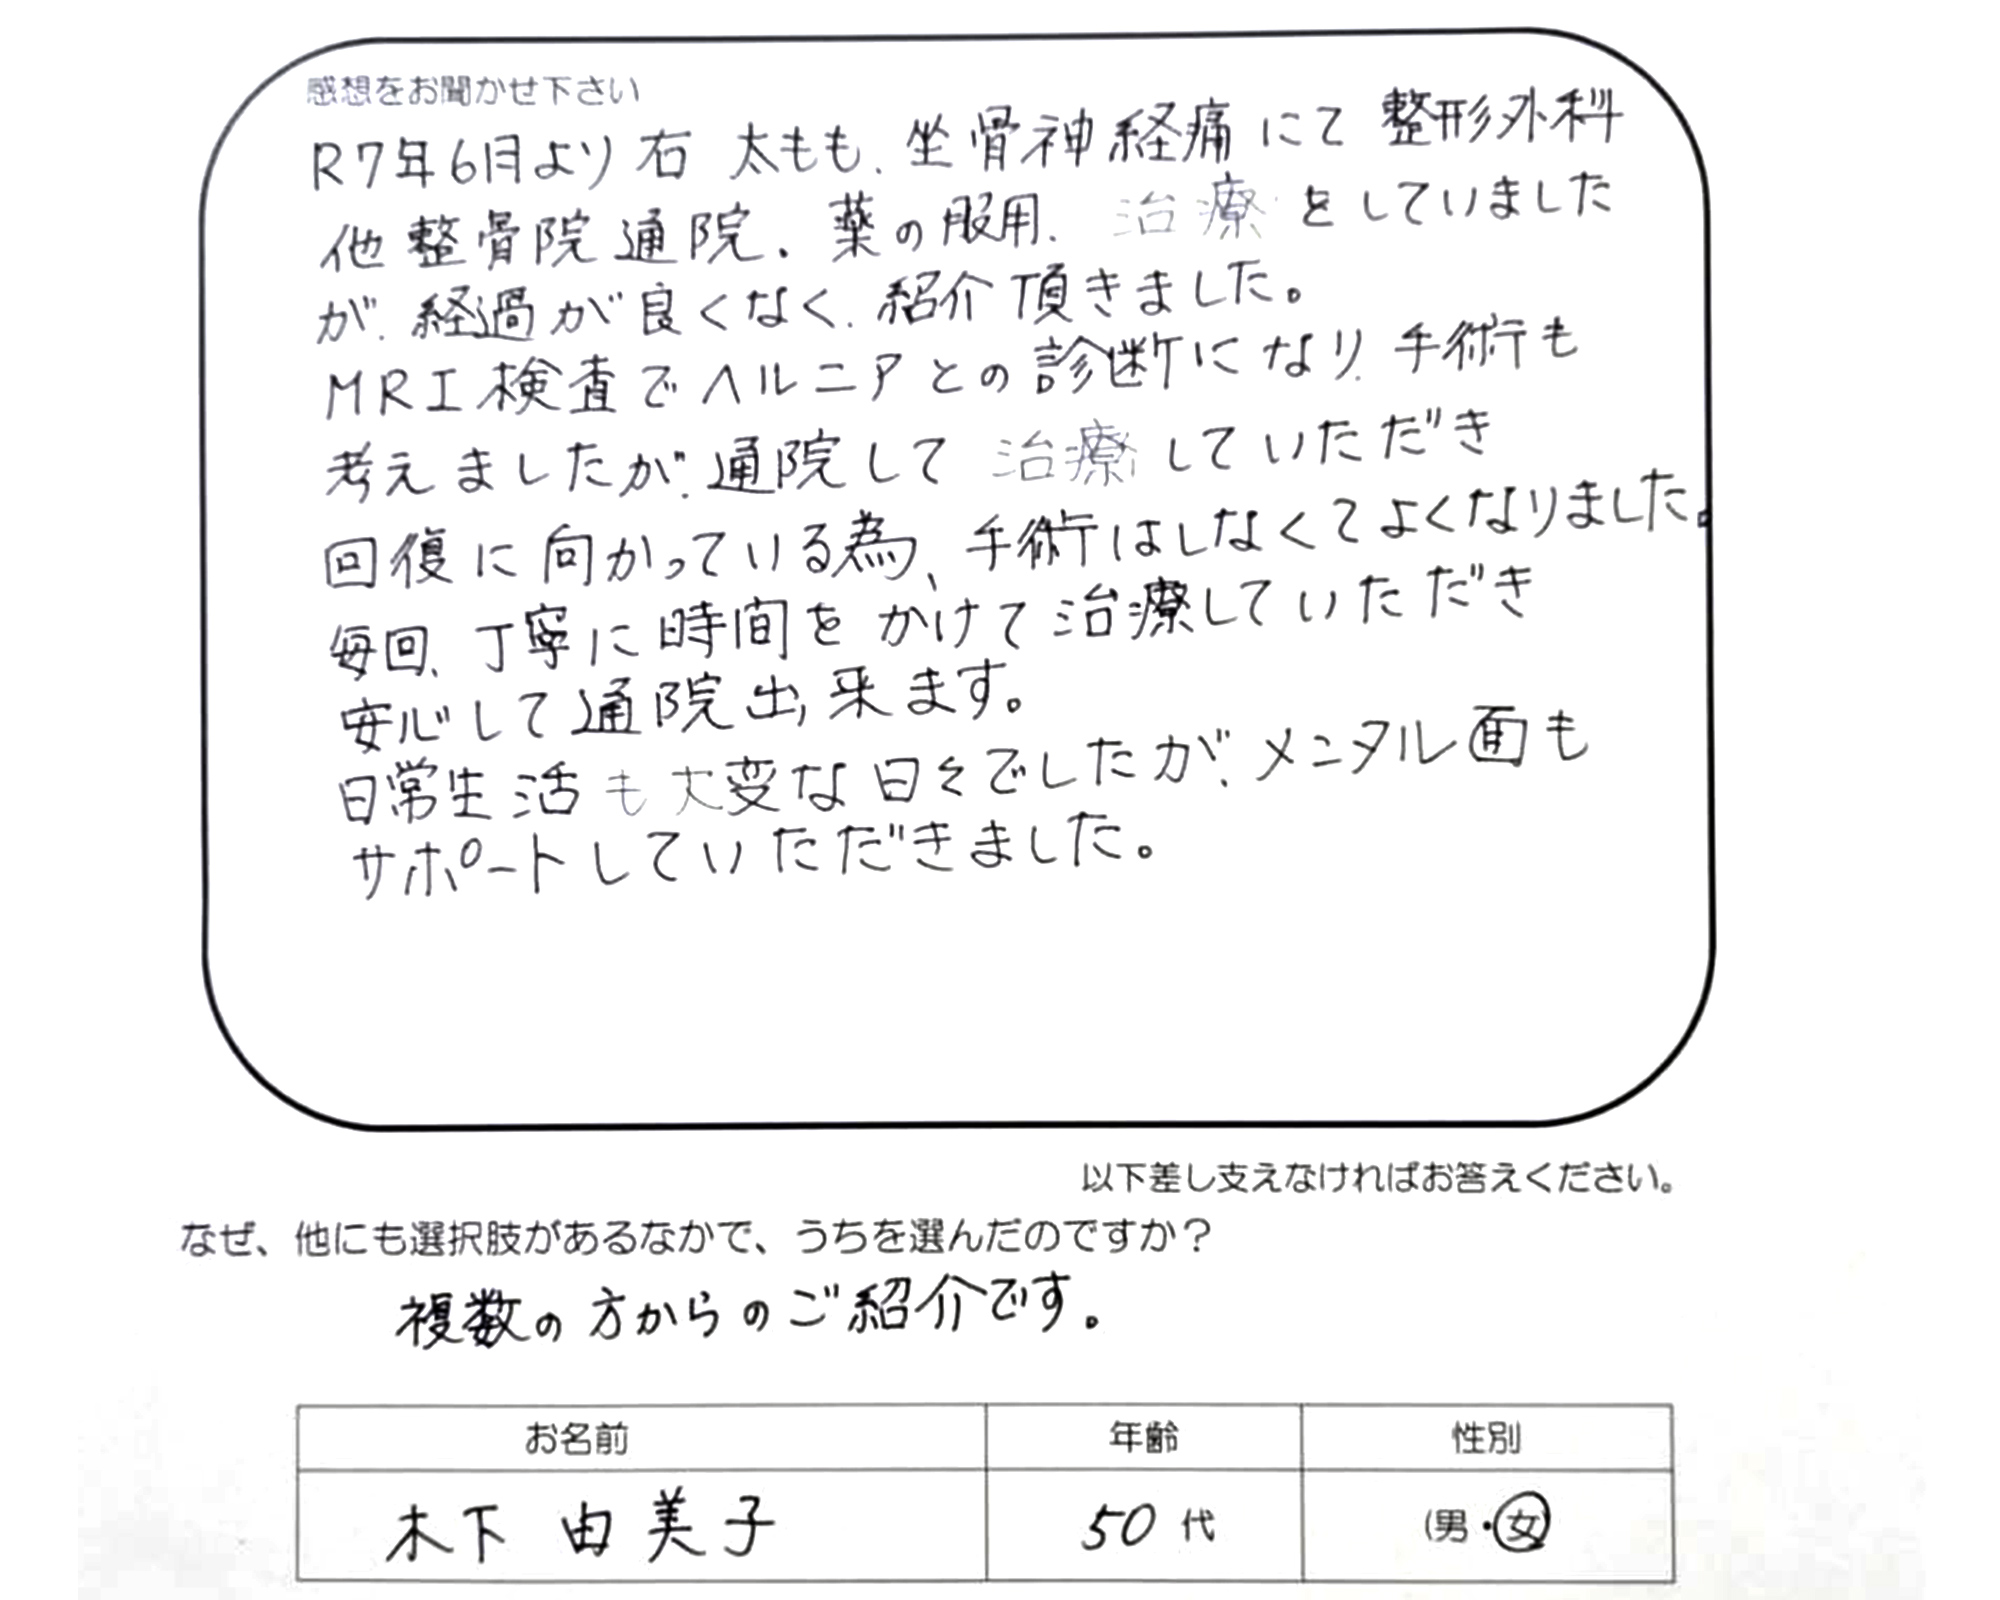 感想をお聞かせ下さい
R7年6月より右 太もも、坐骨神経痛にて 整形外科
他整骨院通院、薬の服用、治療をしていました
が、経過が良くなく、紹介頂きました。
MRI検査でヘルニアとの診断になり、手術も
考えましたが、通院して治療していただき
回復に向かっている為、手術はしなくてよくなりました。
毎回、丁寧に時間をかけて治療していただき
安心して通院出来ます。
日常生活も大変な日々でしたが、メンタル面も
サポートしていただきました。
以下差し支えなければお答えください。
なぜ、他にも選択肢があるなかで、うちを選んだのですか？
複数の方からのご紹介です。
お名前 年齢 性別
木下 由美子 50代 (男・女)